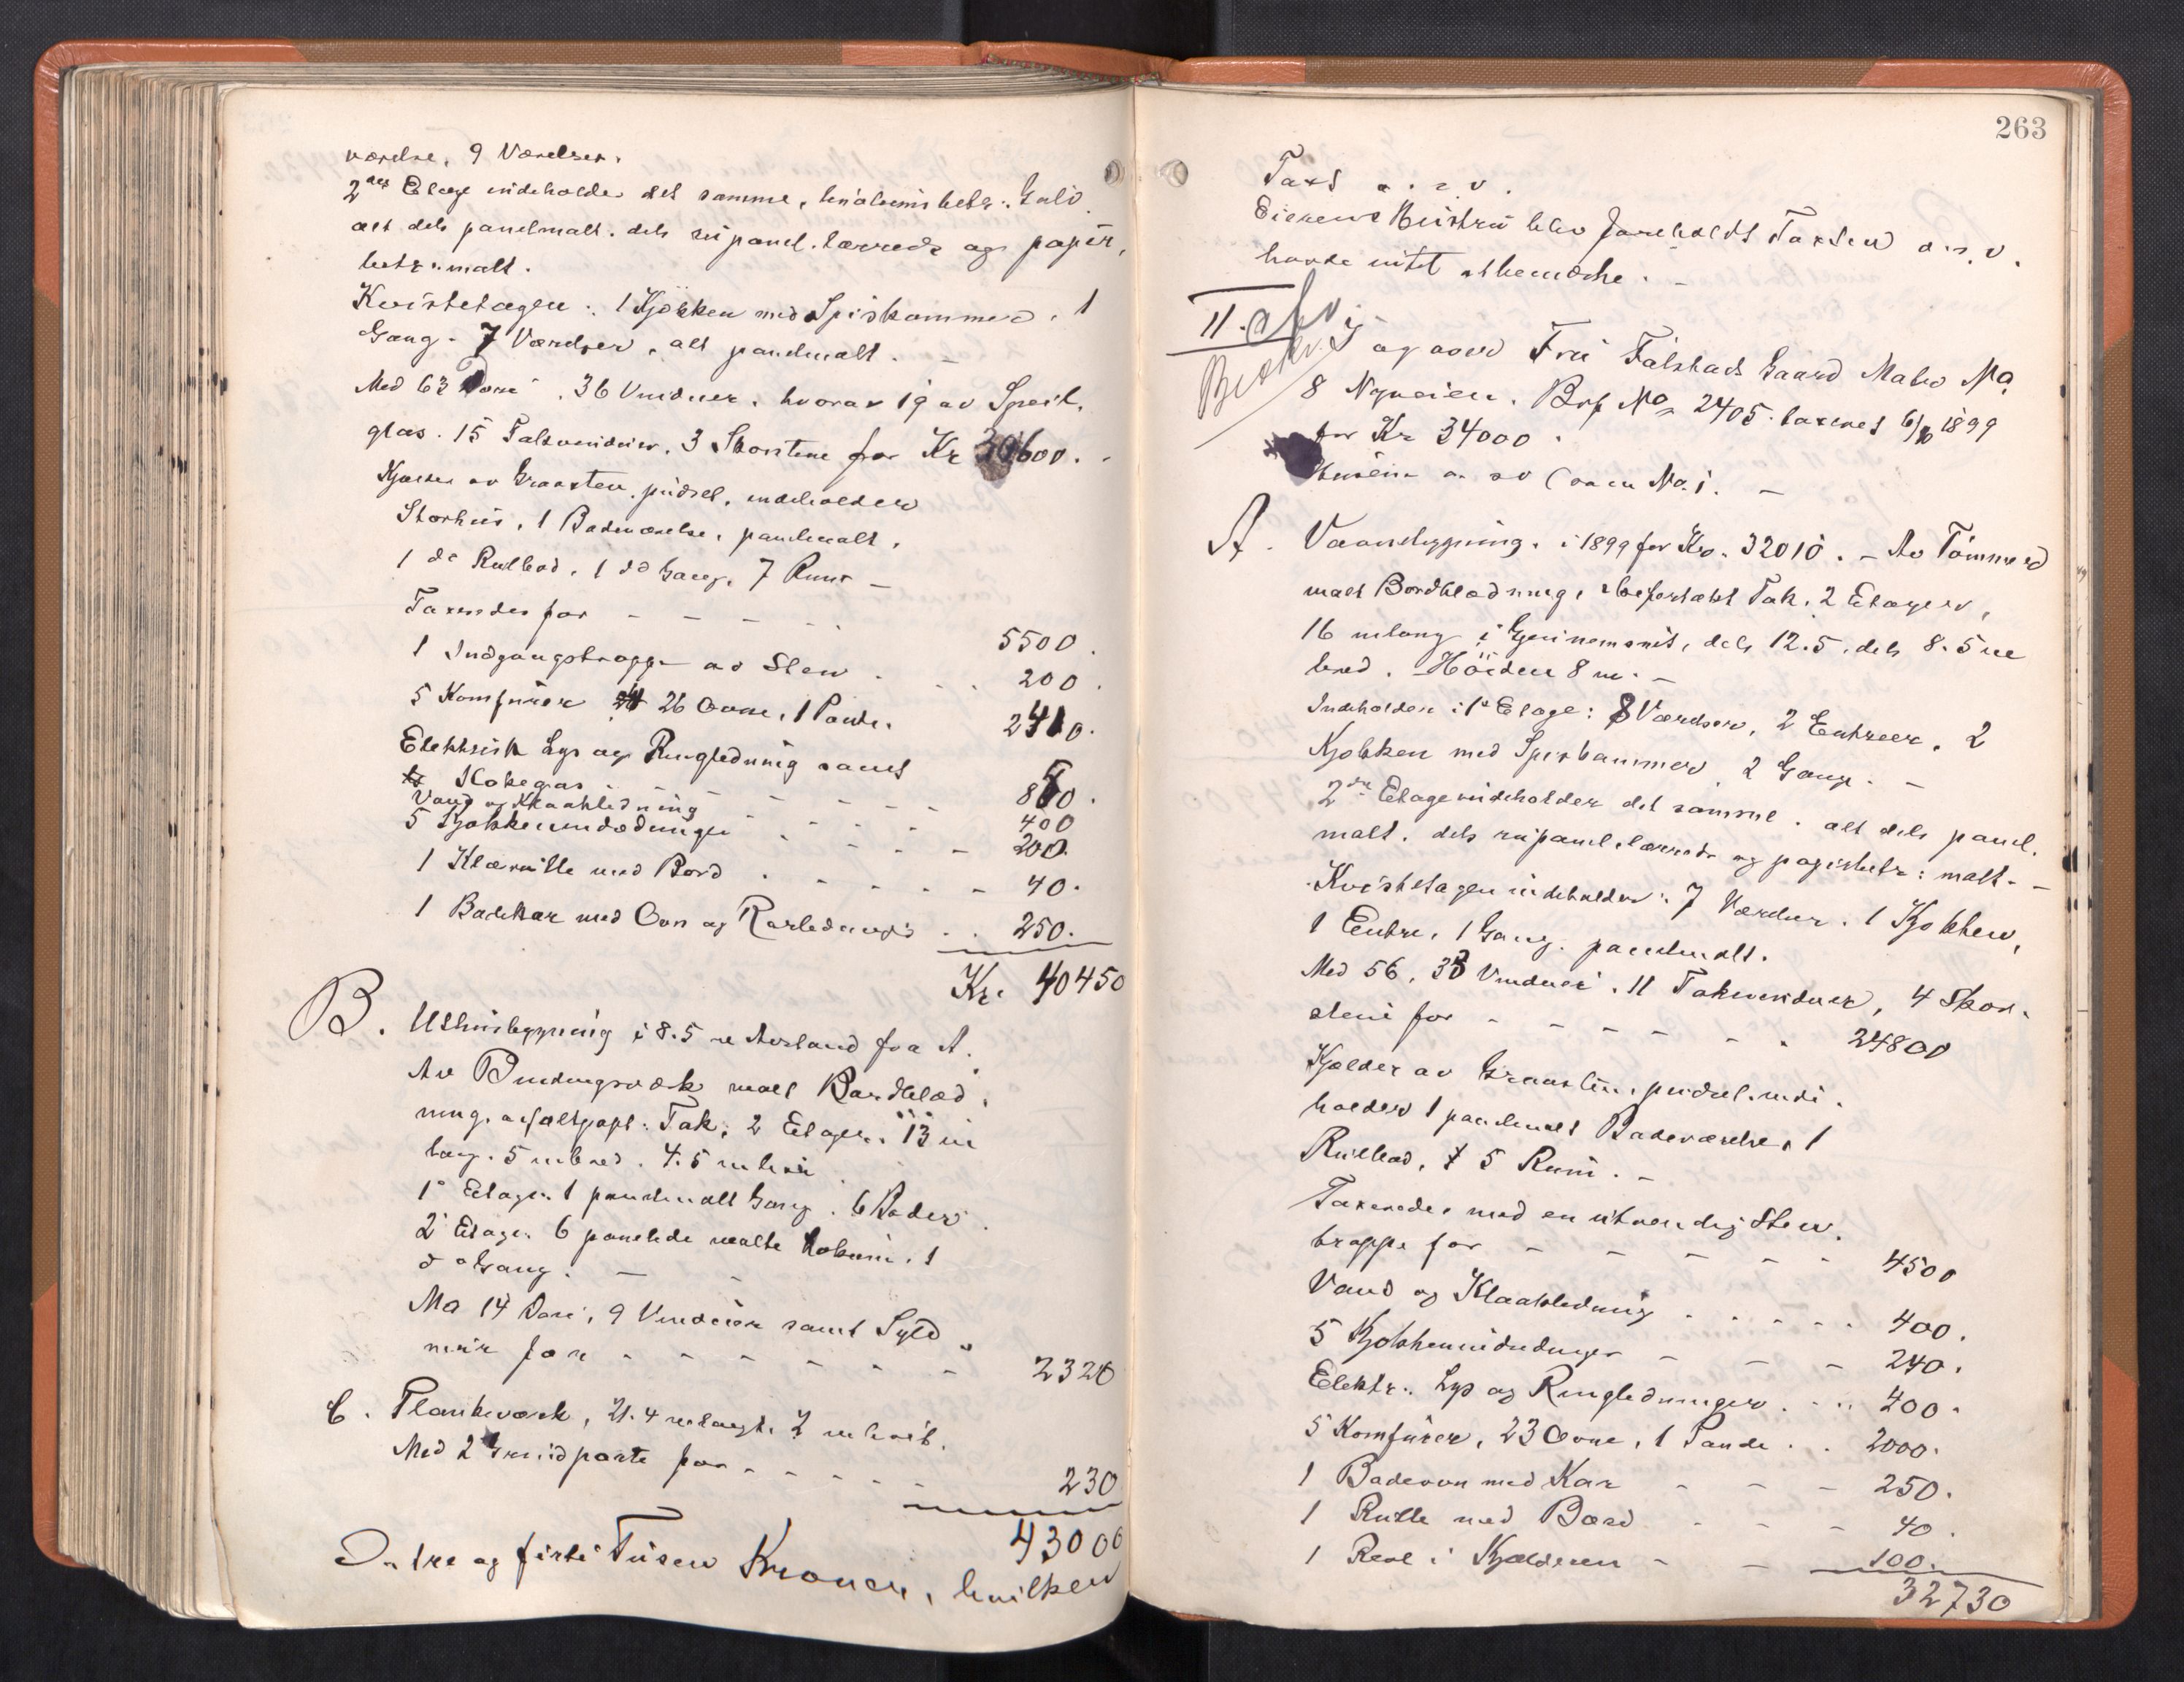 værelse, 9 Værelser.
2den Etage indeholder det samme, linoleumbetr. Gulv
alt dels panelmalt. dels rupanel. lærreds og papir,
betr. malt.
Kvistetagen: 1 Kjøkken med Spiskammer, 1
Gang. 7 Værelser, alt panelmalt. -
Med 63 Døre, 36 Vinduer, hvorav 19 av Speil,
glas. 15 Takvinduer, 3 Skorstene for Kr 30600. -
Kjelder av Graasten, pudset, indeholder
Storhus, 1 Badeværelse, panelmalt,
1 do Rulbod, 1 do Gang, 7 Rum -
Taxerades for - - - - - 5500.
1 Indgangstrappe av Sten . . . 200.
5 Komfurer 26 Ovne, 1 Pande. 2410.
Elektrisk Lys og Ringledning samt
Kokegas - - - - - 850.
Vand og Kloakledning - - - - 400
5 Kjøkkenindredninger - - - - 200.
1 Klærulle med Bord . - - - - 40.
1 Badekar med Ovn og Rørledninger . . 250.
Kr. 40450
B. Uthusbygning i 8.5 m Avstand fra A.
Av Bindingsværk malt Bordklæd,
ning. asfaltpapt. Tak, 2 Etager. 13 m
lang. 5 m bred. 4.5 m høi
1e Etage. 1 panelmalt Gang. 6 Boder.
2 Etage. 6 panelede malte Lokum, 1
do Gang. -
Med 14 Døre, 9 Vinduer samt Syld
mur for - - - - - - 2320
C. Plankeværk, 21.4 m langt. 2 m høit.
Med 2 Grindporte for - - - - - 230
43000
tre og firti Tusen Kroner, hvilken
263
Taxt o. s. v.
Eierens Hustru blev foreholdt Taxten o. s. v.
havde intet at bemærke. -
II.
I og over Fru Falstads Gaard Matr No
8 Nyveien. Brf No 2405. taxeret 6/10 1899
for Kr 34000.
o. s v (som No. 1. -
A. Vaaningsbygning. i 1899 for Kr. 32010. - Av Tømmer
malt Bordklædning, skifertækt Tak, 2 Etager,
16 m lang i Gjennemsnit, dels 12.5, dels 8.5 m
bred. Høiden 8 m. -
Indeholder i 1e Etage: 8 Værelser, 2 Entreer, 2
Kjøkken med Spiskammer, 2 Gange. -
2den Etage indeholder det samme. alt dels panel.
malt. dels rupanel. lærreds og papirbetr: malt. -
Kvistetagen indeholder: 7 Værelser. 1 Kjøkken,
1 Entre, 1 Gang. panelmalt.
Med 56, 38 Vinduer, 11 Takvinduer, 4 Skor.
stene for - - - - - . 24800
Kjælder av Graasten, pudset. inde.
holder 1 panelmalt Badeværelse, 1
Rulbod, 5 Rum. -
Taxerades med en utvendig Sten.
trappe for - - - - - - 4500
Vand og Kloakledning . . . . . 400.
5 Kjøkkenindredninger - - - 240.
Elektr. Lys og Ringledninger . . . 400.
5 Komfurer, 23 Ovne, 1 Pande . . 2000.
1 Badeovn med Kar - - - 250.
1 Rulle med Bord - - - 40.
1 Reol i Kjælderen - - 100.
32730